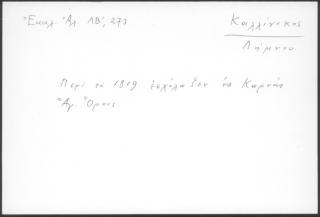 Ἐκκλ. Ἀλ. ΛΒ', 273
Καλλίνικος
Λήμνου
Περὶ τὸ 1819 ἐσχόλαζεν εἰς Καρυὰς
Ἁγ. Ὄρους